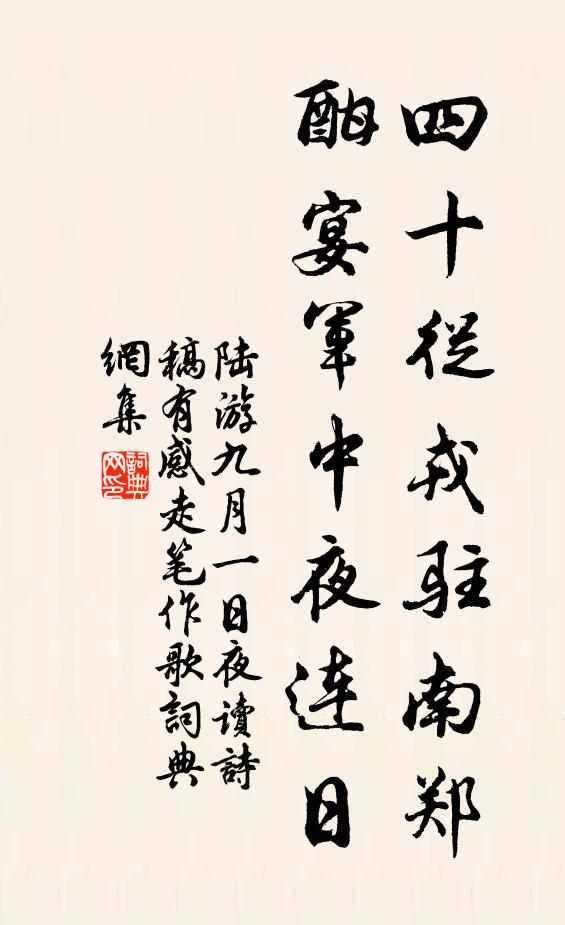 四十從戎駐南郑
酣宴軍中夜连日
陆游九月一日夜讀詩
稿有感走笔作歌詞典
網集
詞典网印